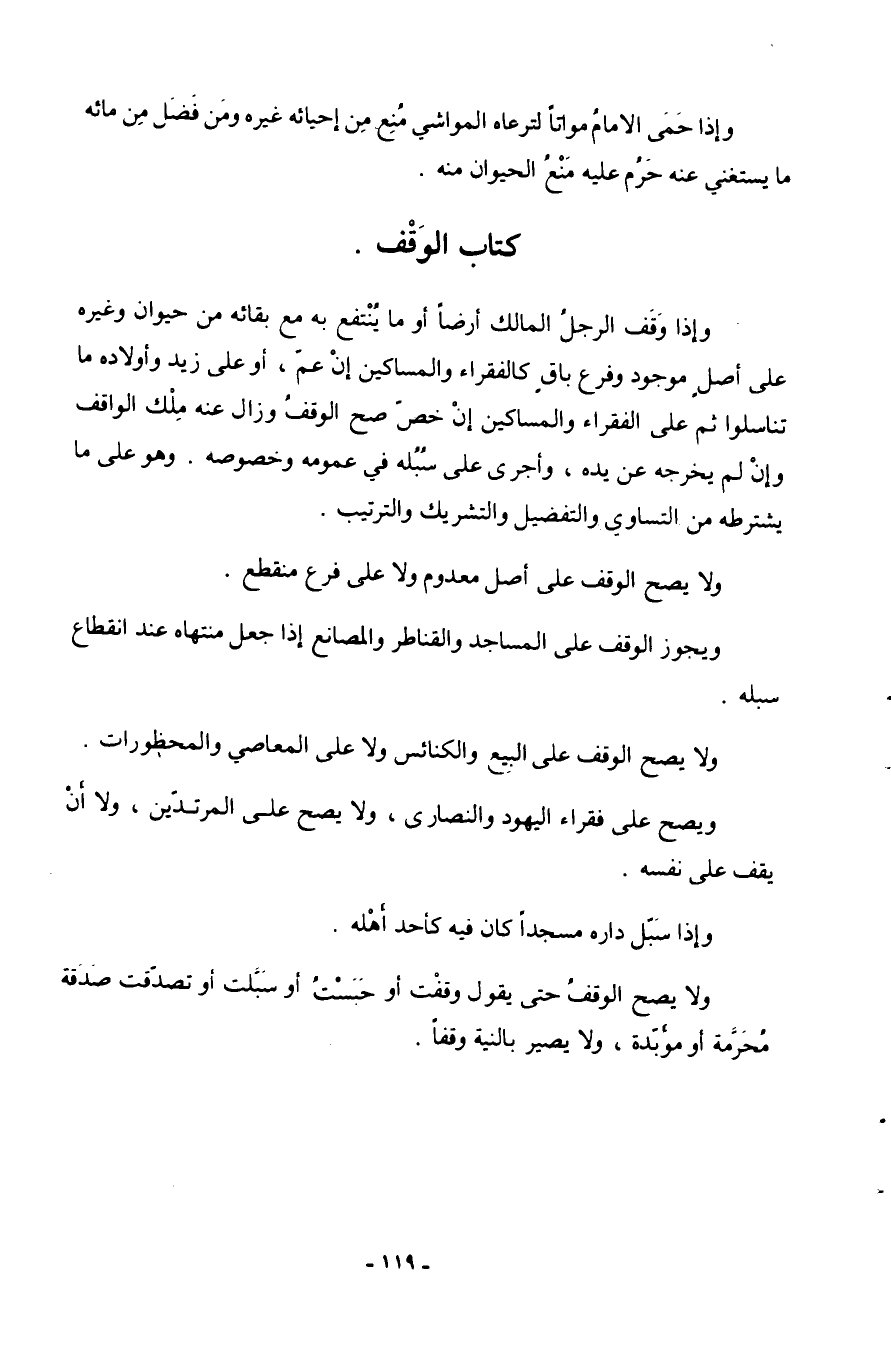 وإذا حَمَى الامامُ مواتاً لترعاه المواشي مُنِع مِن إحيائه غيره ومَن فَضَل مِن مائه
ما يستغني عنه حَرُم عليه مَنْعُ الحيوان منه .
كتاب الوَقْف .
وإذا وَقَف الرجلُ المالك أرضاً أو ما يُنْتفع به مع بقائه من حيوان وغيره
على أصلٍ موجود وفرع باقٍ كالفقراء والمساكين إنْ عمّ ، أو على زيد وأولاده ما
تناسلوا ثم على الفقراء والمساكين إنْ خصّ صح الوقفُ وزال عنه مِلْك الواقف
وإنْ لم يخرجه عن يده ، وأجرى على سُبُله في عمومه وخصوصه . وهو على ما
يشترطه من التساوي والتفضيل والتشريك والترتيب .
ولا يصح الوقف على أصل معدوم ولا على فرع منقطع .
ويجوز الوقف على المساجد والقناطر والمصانع إذا جعل منتهاه عند انقطاع
سبله .
ولا يصح الوقف على البِيع والكنائس ولا على المعاصي والمحظورات .
ويصح على فقراء اليهود والنصارى ، ولا يصح على المرتدّين ، ولا أَنْ
يقف على نفسه .
وإذا سَبّل داره مسجداً كان فيه كأحد أَهْله .
ولا يصح الوقفُ حتى يقول وقفْت أو حَبَسْتُ أو سَبَّلت أو تصدّقت صَدَقة
مُحَرَّمة أو مؤَبّدة ، ولا يصير بالنية وقفاً .
- ١١٩ -